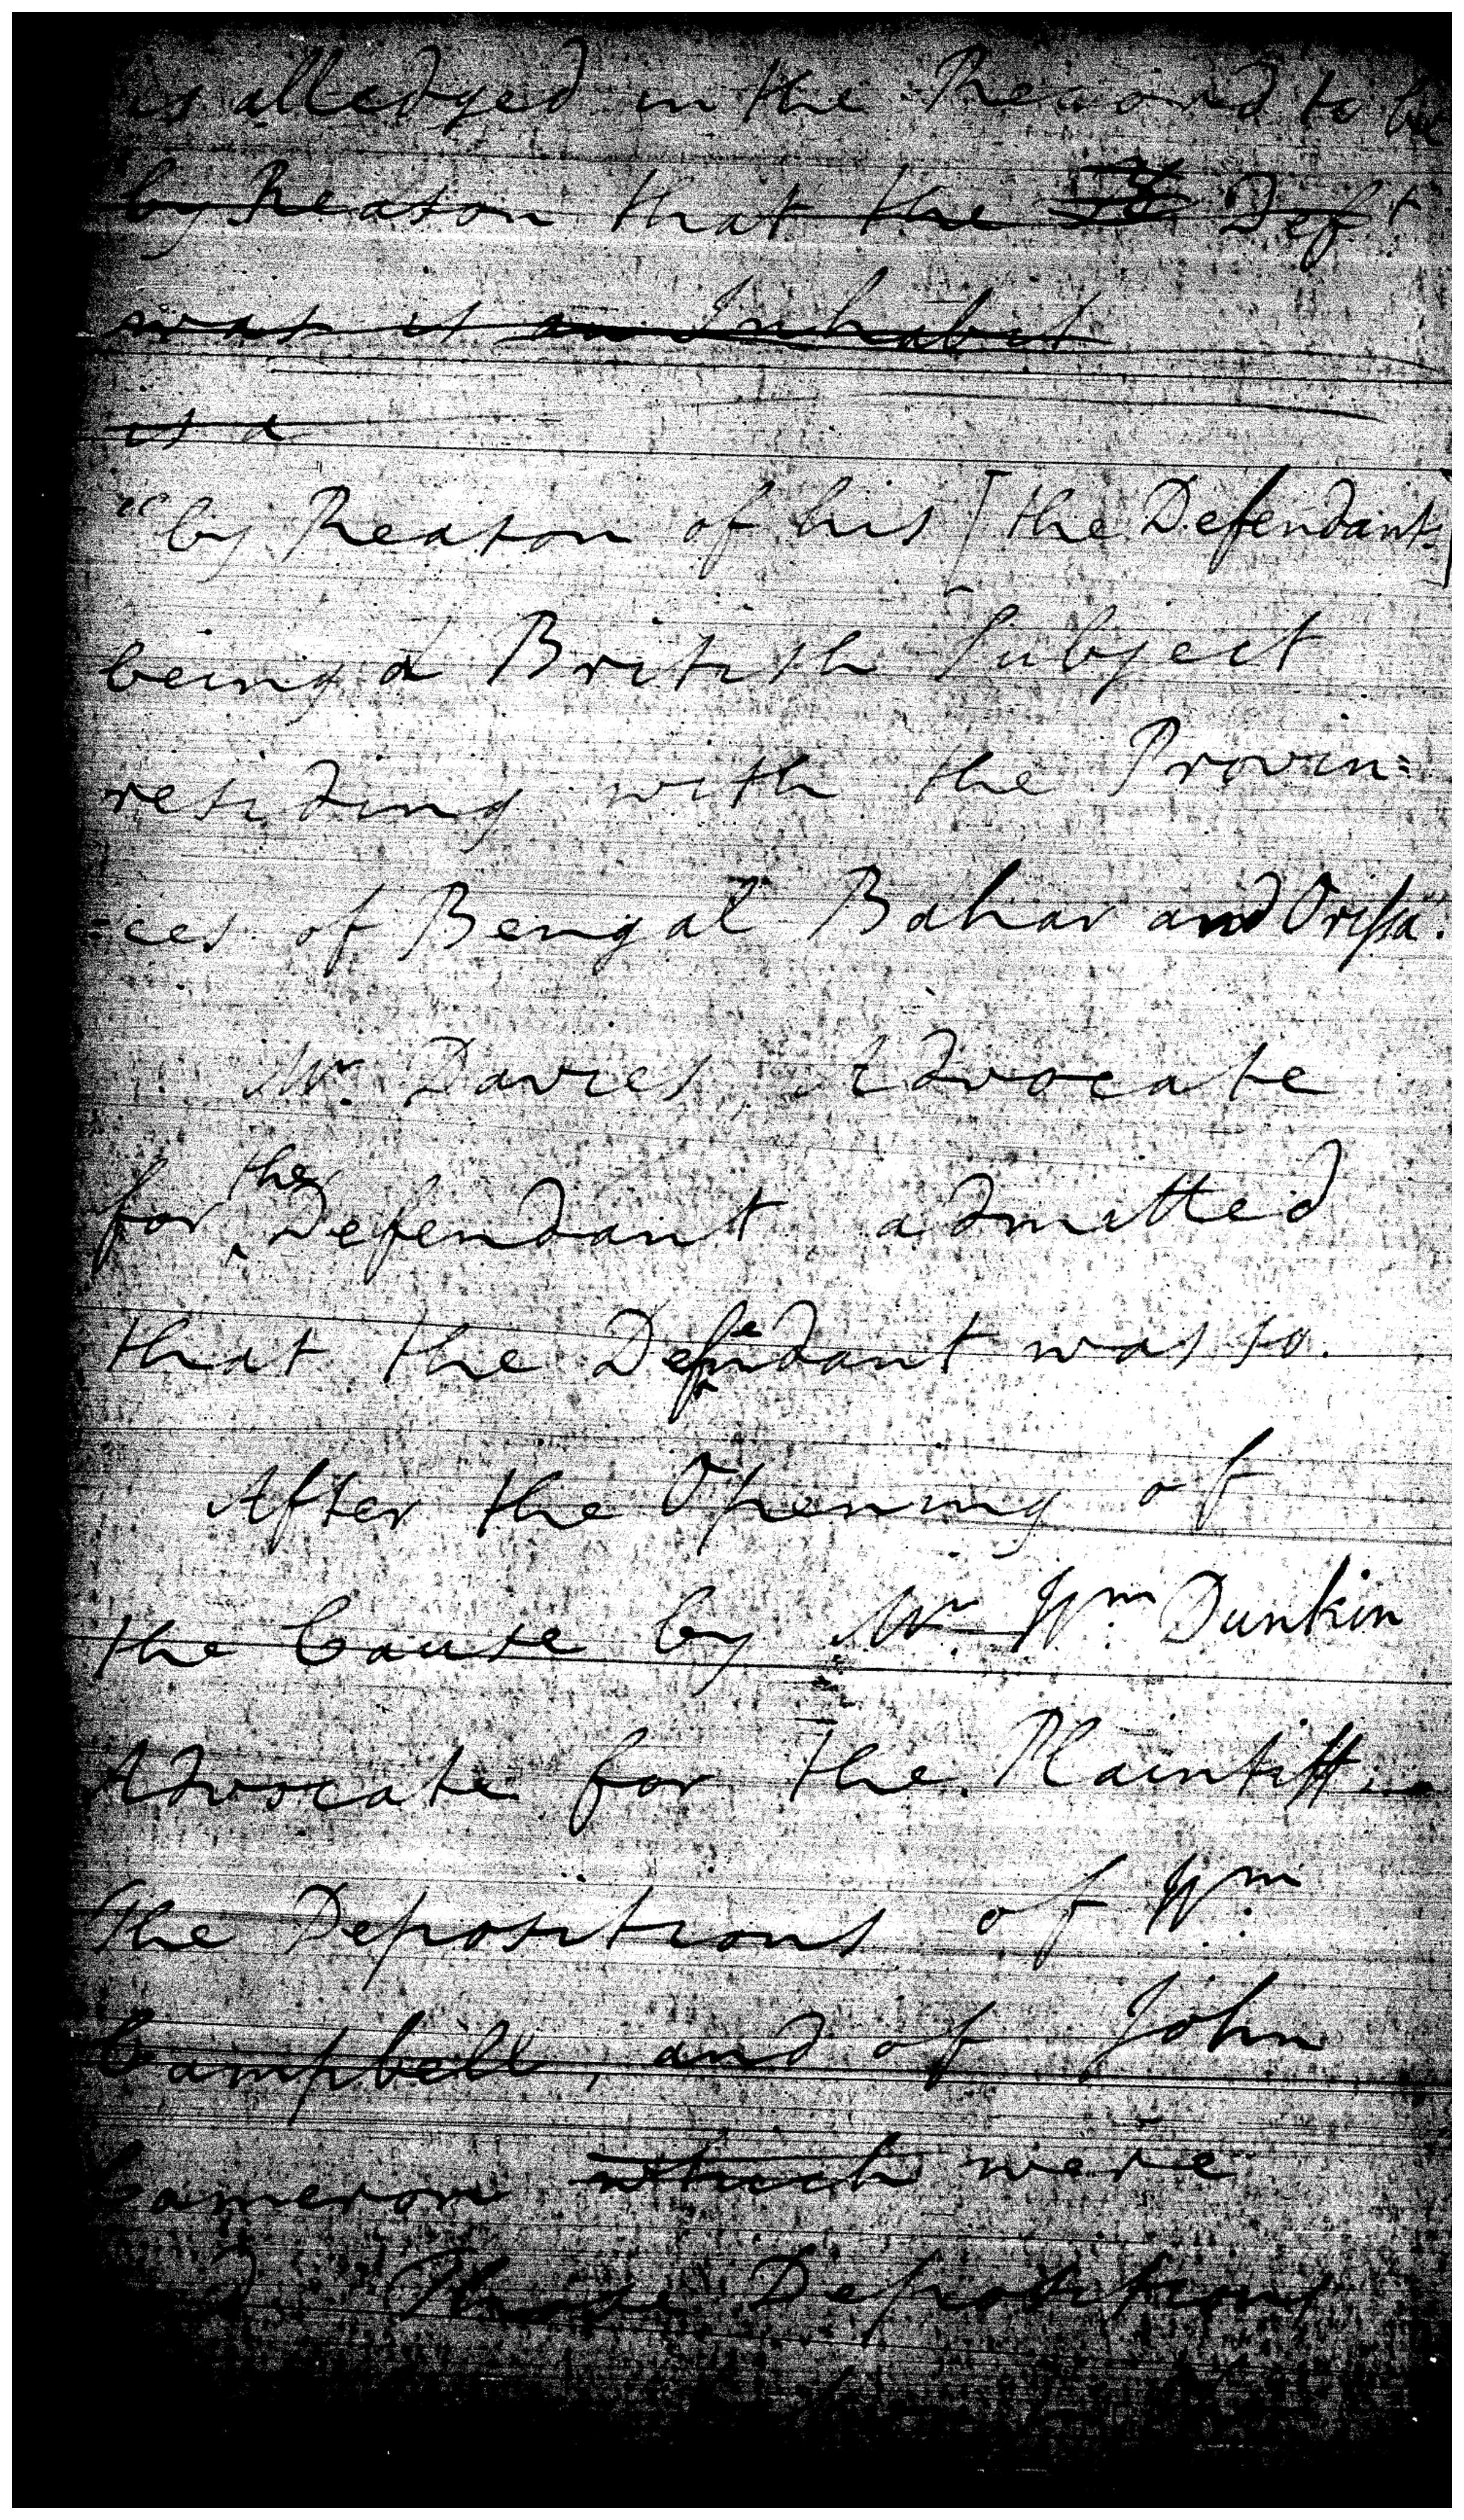 is alledged in the Record to be
by Reason that the Deft
was is an Inhabit
is a
"by Reason of his [the Defendants]
being a British Subject
residing with the Provin=
-ces of Bengal Bahar and Orissa".
Mr. Davies, Advocate
for the Defendant admitted
that the Defendant was so.
After the Opening of
the Cause by Mr. Wm. Dunkin
Advocate for the Plaintiff.
The Depositions of Wm.
Campbell, and of John
Cameron which were
Those Depositions